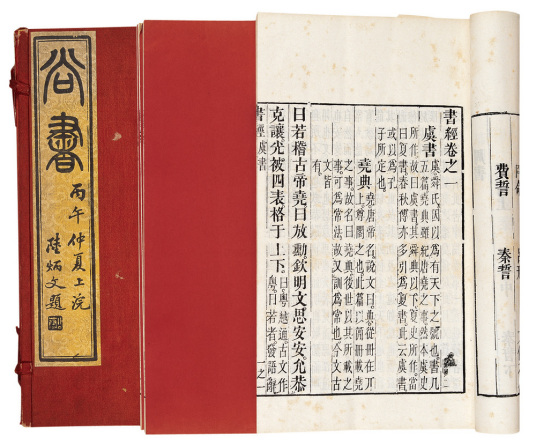 尚書
丙午仲夏上浣
陸炳文題
費誓
秦誓
書經卷之一
虞書
虞舜氏因以爲有天下之號也書凡
五篇堯典雖紀唐堯之事然本虞史
所作故曰虞書其舜典以下夏史所作當
曰夏書春秋傳亦多引爲夏書此云虞書
或以爲孔
子所定也
堯典
堯唐帝名說文曰典從冊在丌
上尊閣之也此篇以簡冊載堯
之事故名曰堯典後世以其所載之
事可爲常法故又訓爲常也今文古
文皆
有
曰若稽古帝堯曰放勳欽明文思安安允恭
克讓光被四表格于上下
曰粵越通古文作
粵曰若者發語辭
書經 虞書
一之一